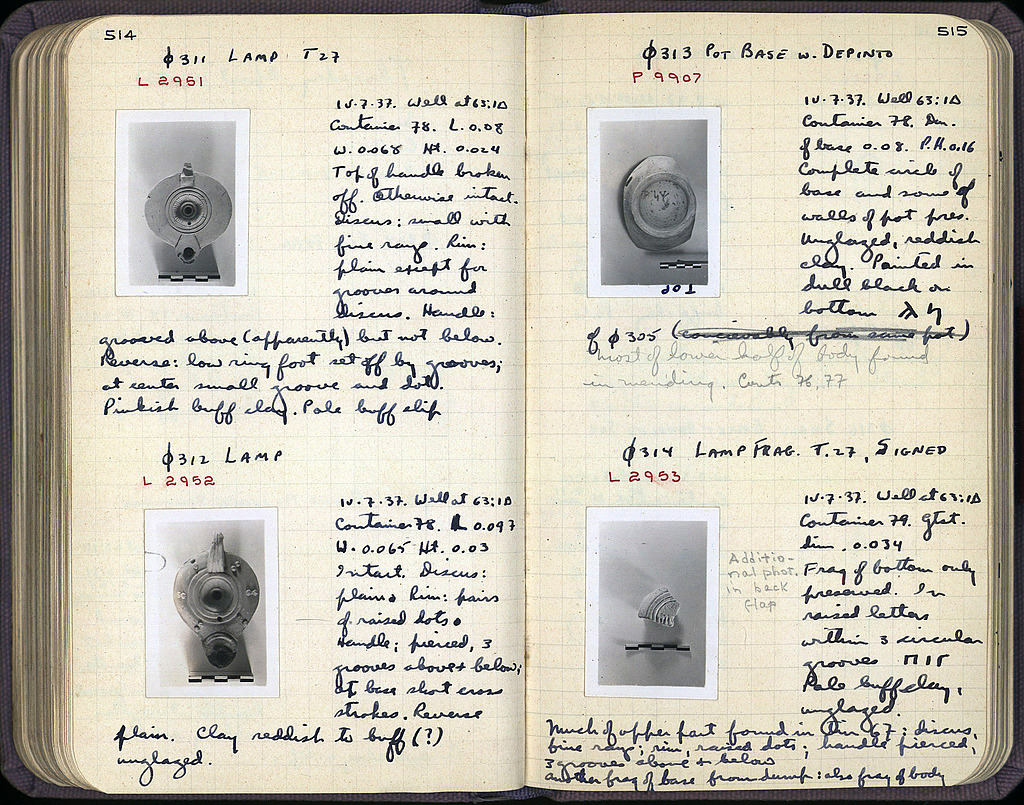 514
φ311 LAMP T 27
L 2951
IV.7.37. Well at 63:1Δ
Container 78. L. 0.08
W. 0.068 Ht. 0.024
Top of handle broken
off. Otherwise intact.
Discus: small with
fine rays. Rim:
plain except for
grooves around
discus. Handle:
grooved above (apparently) but not below.
Reverse: low ring foot set off by grooves;
at center small groove and dot.
Pinkish buff clay. Pale buff slip
φ312 LAMP
L 2952
IV.7.37. Well at 63:1Δ
Container 78. L 0.097
W. 0.065 Ht. 0.03
Intact. Discus:
plain. Rim: pairs
of raised dots.
Handle; pierced, 3
grooves above + below;
at base short cross
strokes. Reverse
plain. Clay reddish to buff (?)
unglazed.
515
φ313 POT BASE W. DEPINTO
P 9907
IV.7.37. Well 63:1Δ
Container 78. Dm.
of base 0.08. P.H. 0.16
Complete circle of
base and some of
walls of pot pres.
Unglazed, reddish
clay. Painted in
dull black on
bottom
TOP
cf φ305 (conceivably from same pot)
most of lower half of body found
in mending. Conts 76, 77
φ314 LAMP FRAG. T. 27, SIGNED
L 2953
IV.7.37. Well at 63:1Δ
Container 79. Gtst.
dim. 0.034
Frag of bottom only
preserved. In
raised letters
within 3 circular
grooves ΠΙΓ
Pale buff clay,
unglazed.
Additio-
nal phot.
in back
flap
Much of upper part found in 67: discus,
fine rays; rim, raised dots; handle pierced,
3 grooves above + below
another frag of base from dump: also frag of body